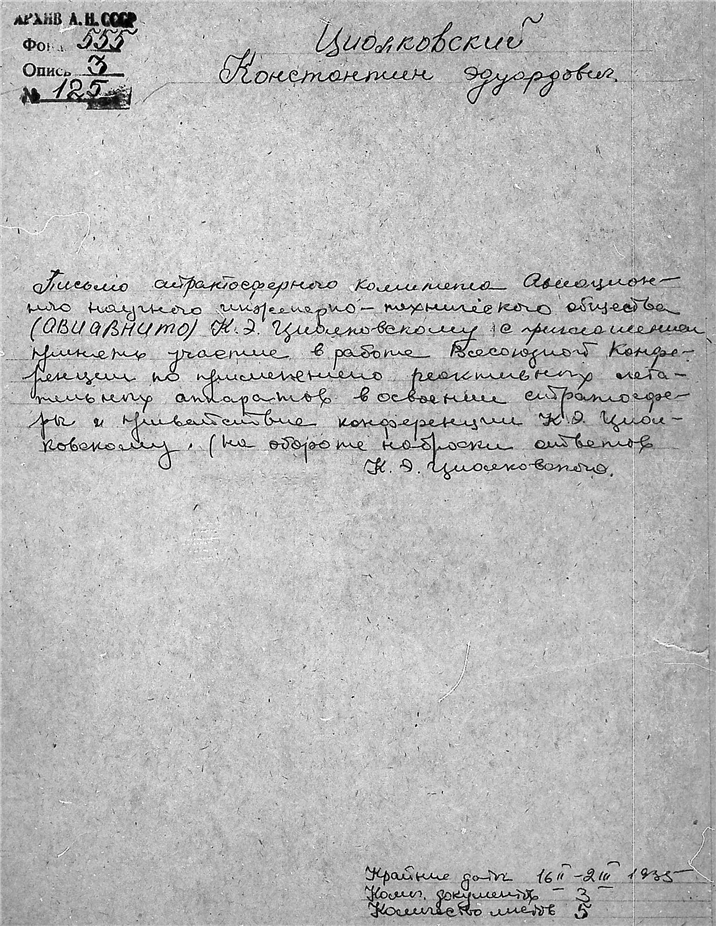 АРХИВ А. Н. СССР
Фонд 555
Опись 3
№ 125
Циолковский
Константин Эдуардович.
Письмо стратосферного комитета Авиацион-
ного научного инженерно-технического общества
(АВИАВНИТО) К. Э. Циолковскому с приглашением
принять участие в работе Всесоюзной Конфе-
ренции по применению реактивных лета-
тельных аппаратов в освоении стратосфе-
ры и приветствие конференции К. Э. Циол-
ковскому. (на обороте наброски ответов
К. Э. Циолковского.
Крайние даты 16 II - 2 III 1935
Колич. документов 3
Количество листов 5